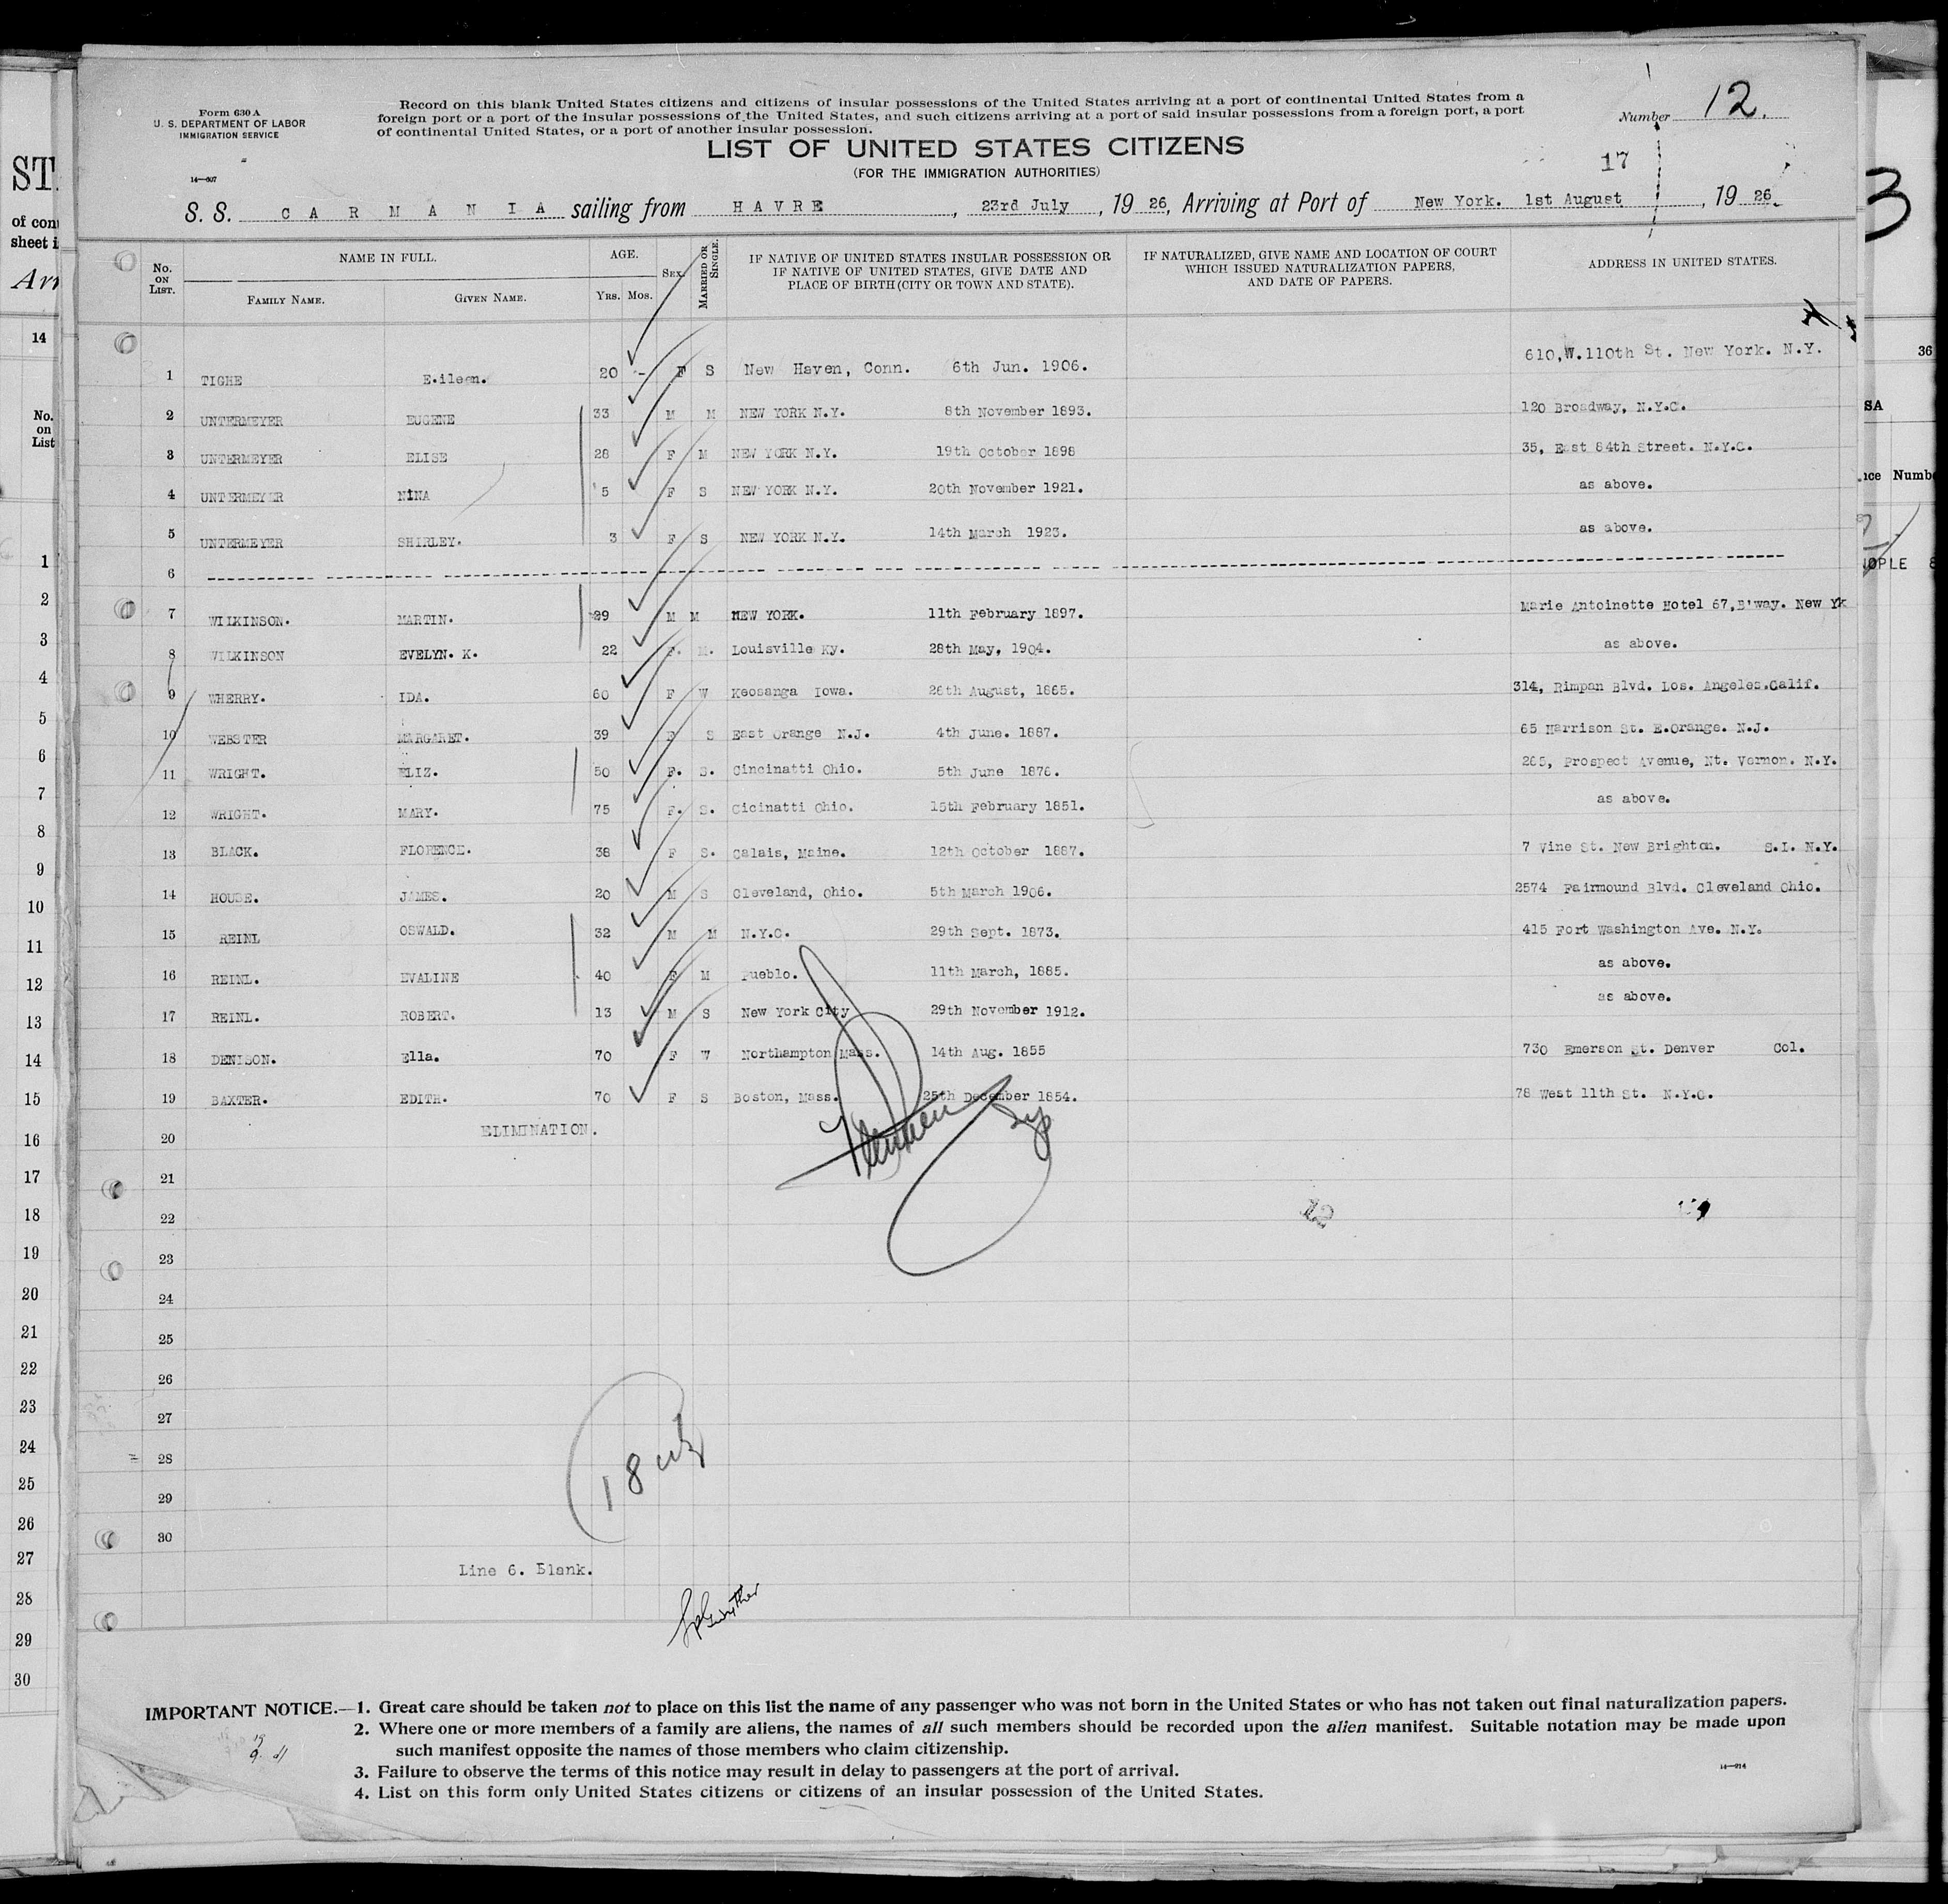 Form 630 A
U. S. DEPARTMENT OF LABOR
IMMIGRATION SERVICE
14—607
Record on this blank United States citizens and citizens of insular possessions of the United States arriving at a port of continental United States from a
foreign port or a port of the insular possessions of the United States, and such citizens arriving at a port of said insular possessions from a foreign port, a port
of continental United States, or a port of another insular possession.
Number 12.
LIST OF UNITED STATES CITIZENS
(FOR THE IMMIGRATION AUTHORITIES)
17
S. S. CARMANIA sailing from HAVRE, 23rd July, 19 26, Arriving at Port of New York. 1st August, 19 26.
No. ON LIST. NAME IN FULL. FAMILY NAME. GIVEN NAME. AGE. YRS. MOS. SEX. MARRIED OR SINGLE. IF NATIVE OF UNITED STATES INSULAR POSSESSION OR IF NATIVE OF UNITED STATES, GIVE DATE AND PLACE OF BIRTH (CITY OR TOWN AND STATE). IF NATURALIZED, GIVE NAME AND LOCATION OF COURT WHICH ISSUED NATURALIZATION PAPERS, AND DATE OF PAPERS. ADDRESS IN UNITED STATES.
1 TIGHE E.ileen. 20 - F S New Haven, Conn. 6th Jun. 1906. 610,W.110th St. New York. N.Y.
2 UNTERMEYER EUGENE 33 M M NEW YORK N.Y. 8th November 1893. 120 Broadway, N.Y.C.
3 UNTERMEYER ELISE 28 F M NEW YORK N.Y. 19th October 1898 35, East 84th Street. N.Y.C.
4 UNTERMEYER NINA 5 F S NEW YORK N.Y. 20th November 1921. as above.
5 UNTERMEYER SHIRLEY. 3 F S NEW YORK N.Y. 14th March 1923. as above.
6
7 WILKINSON. MARTIN. 29 M M NEW YORK. 11th February 1897. Marie Antoinette Hotel 67,B'way. New Yk
8 WILKINSON EVELYN. K. 22 F. M. Louisville Ky. 28th May, 1904. as above.
9 WHERRY. IDA. 60 F W Keosanga Iowa. 26th August, 1865. 314, Rimpan Blvd. Los. Angeles.Calif.
10 WEBSTER MARGARET. 39 F S East Orange N.J. 4th June. 1887. 65 Harrison St. E.Orange. N.J.
11 WRIGHT. ELIZ. 50 F. S. Cincinatti Ohio. 5th June 1876. 265, Prospect Avenue, Mt. Vernon. N.Y.
12 WRIGHT. MARY. 75 F. S. Cicinatti Ohio. 15th February 1851. as above.
13 BLACK. FLORENCE. 38 F S. Calais, Maine. 12th October 1887. 7 Vine St. New Brighton. S.I. N.Y.
14 HOUSE. JAMES. 20 M S Cleveland, Ohio. 5th March 1906. 2574 Fairmound Blvd. Cleveland Ohio.
15 REINL OSWALD. 32 M M N.Y.C. 29th Sept. 1873. 415 Fort Washington Ave. N.Y.
16 REINL. EVALINE 40 F M Pueblo. 11th March, 1885. as above.
17 REINL. ROBERT. 13 M S New York City 29th November 1912. as above.
18 DENISON. Ella. 70 F W Northampton Mass. 14th Aug. 1855 730 Emerson St. Denver Col.
19 BAXTER. EDITH. 70 F S Boston, Mass. 25th December 1854. 78 West 11th St. N.Y.C.
20 ELIMINATION.
21
22 12
23
24
25
26
27
28
29
30
Line 6. Blank.
IMPORTANT NOTICE.—1. Great care should be taken not to place on this list the name of any passenger who was not born in the United States or who has not taken out final naturalization papers.
2. Where one or more members of a family are aliens, the names of all such members should be recorded upon the alien manifest. Suitable notation may be made upon
such manifest opposite the names of those members who claim citizenship.
3. Failure to observe the terms of this notice may result in delay to passengers at the port of arrival.
4. List on this form only United States citizens or citizens of an insular possession of the United States.
14—914